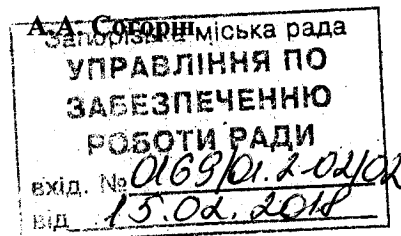 А.А. Согорін
Запорізька міська рада
УПРАВЛІННЯ ПО
ЗАБЕЗПЕЧЕННЮ
РОБОТИ РАДИ
вхід. № 0169/01.2-02/02
від 15.02.2018